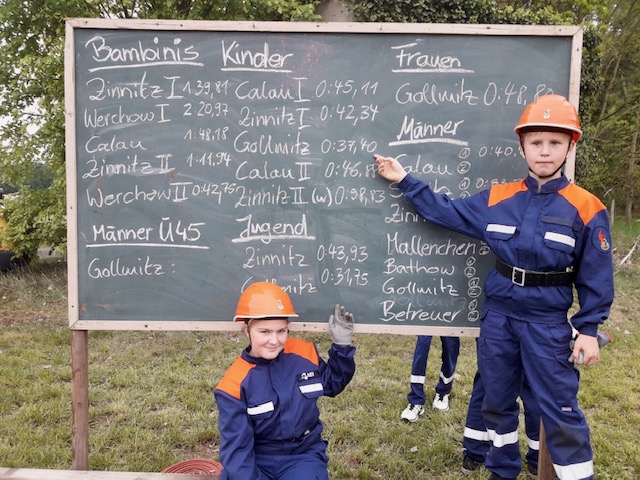 Bambinis
Zinnitz I 1:39,81
Werchow I 2:20,97
Calau 1:48,18
Zinnitz II 1:11,94
Werchow II 0:42,75
Männer Ü45
Gollmitz:
Kinder
Calau I 0:45,11
Zinnitz I 0:42,34
Gollmitz 0:37,40
Calau II 0:46,
Zinnitz II (w) 0:58,83
Jugend
Zinnitz 0:43,93
Gollmitz 0:31,75
Frauen
Gollmitz 0:48,
Männer
Calau ① 0:40,
②
Mallenchen
Bathow
Gollmitz
Betreuer